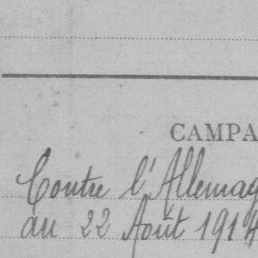 CAMPA
Contre l'Allemag
au 22 Août 1914